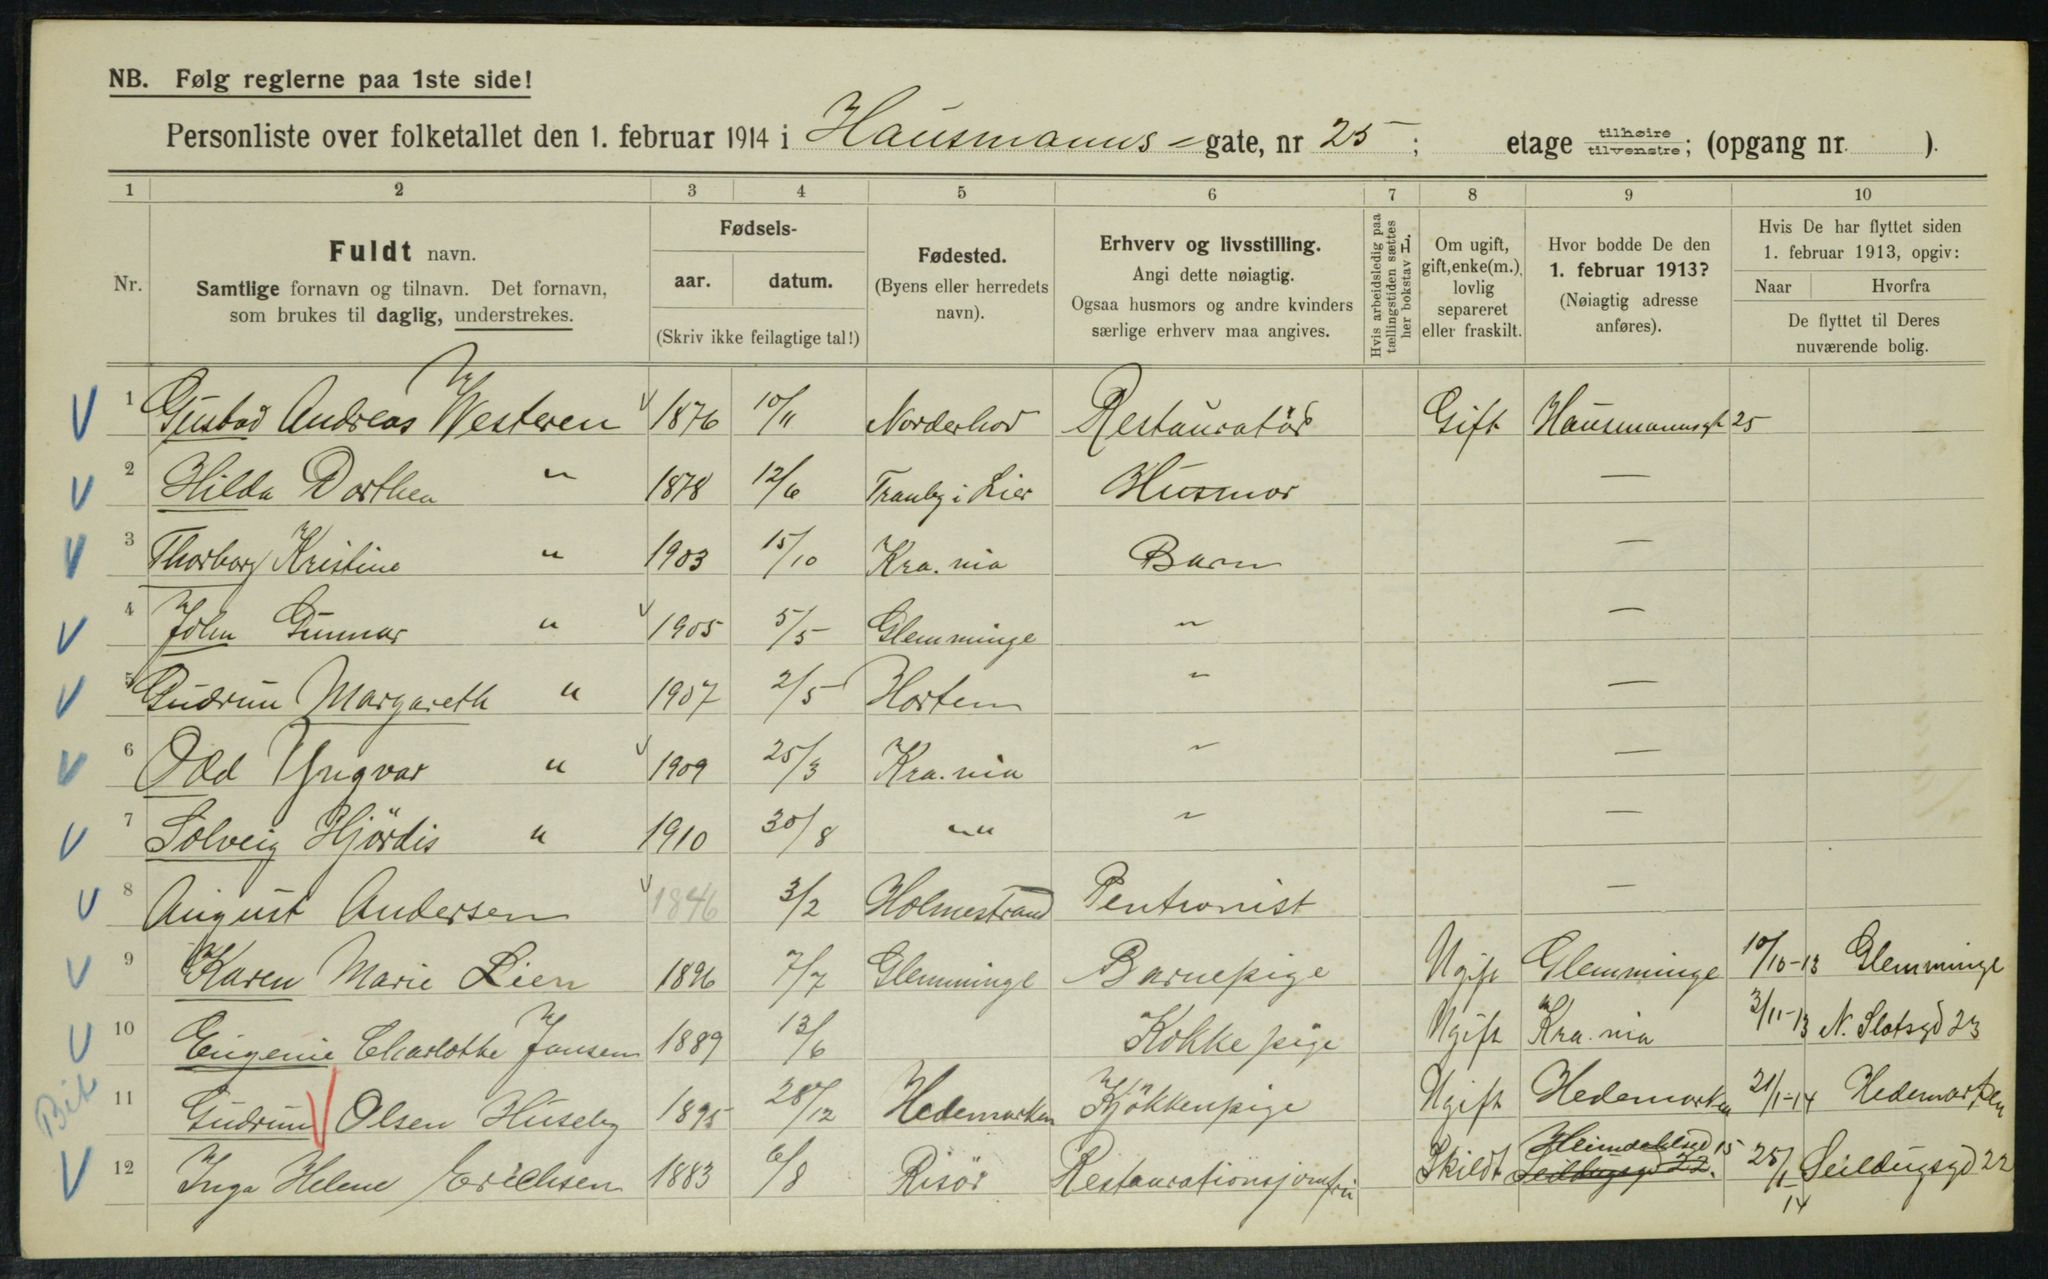 NB. Følg reglerne paa 1ste side!
Personliste over folketallet den 1. februar 1914 i Hausmanns - gate, nr 25 ; etage tilhøire tilvenstre; (opgang nr ).
1 2 3 4 5 6 7 8 9 10
Nr.
Fuldt navn.
Samtlige fornavn og tilnavn. Det fornavn,
som brukes til daglig, understrekes.
Fødsels-
aar. datum.
(Skriv ikke feilagtige tal!)
Fødested.
(Byens eller herredets
navn).
Erhverv og livsstilling.
Angi dette nøiagtig.
Ogsaa husmors og andre kvinders
særlige erhverv maa angives.
Hvis arbeidsledig paa
tællingstiden sættes
her bokstav L.
Om ugift,
gift, enke(m.),
lovlig
separeret
eller fraskilt.
Hvor bodde De den
1. februar 1913?
(Nøiagtig adresse
anføres).
Hvis De har flyttet siden
1. februar 1913, opgiv:
Naar Hvorfra
De flyttet til Deres
nuværende bolig.
1 Gustav Andreas Westeren 1876 10/11 Norderhov Restauratør Gift Hausmannsgt 25
2 Hilda Dorthea " 1878 12/6 Tranby i Lier Husmor —
3 Thorborg Kristine " 1903 15/10 Kra.nia Barn —
4 John Gunnar " 1905 5/5 Glemminge " —
5 Gudrun Margareth " 1907 2/5 Horten " —
6 Odd Yngvar " 1909 25/3 Kra.nia " —
7 Solveig Hjördis " 1910 30/8 "" " —
8 August Andersen 1846 3/2 Holmestrand Pentionist —
9 Karen Marie Lien 1896 7/7 Glemminge Barnepige Ugift Glemminge 10/10-13 Glemminge
10 Eugenie Charlothe Jansen 1889 13/6 Kokkepige Ugift Kra.nia 3/11-13 N. Slotsgd 23
Bit
11 Gudrun Olsen Huseby 1895 28/12 Hedemarken Kjökkenpige Ugift Hedemarken 21/1-14 Hedemarken
12 Inga Helene Erichsen 1883 6/8 Risör Restaurationsjomfru Skildt Heimdalsgd 15 Seildugsgd 22. 25/1-14 Seildugsgd 22